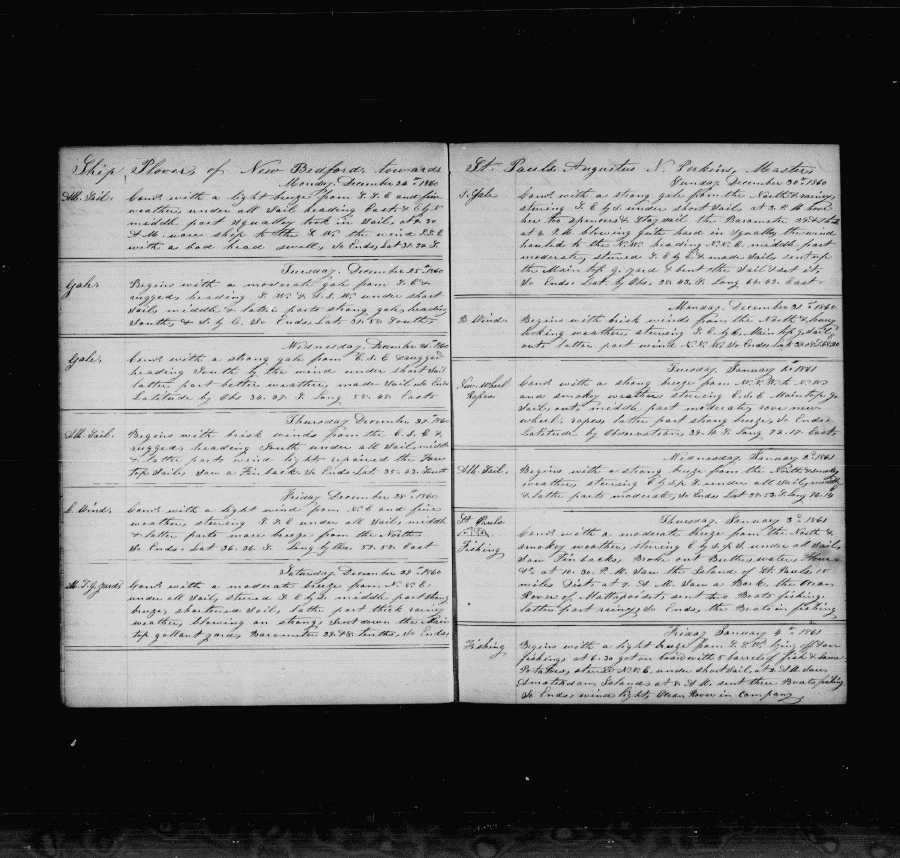 Ship Plover, of New Bedford, towards
Monday, December 24th 1860
All Sail. Comd. with a light breeze from S. S. E and fine
weather, under all Sail heading East. & E by S
middle part Squally took in Sail, at 9.30
A M. wore ship to the S. W. the wind S. S. E
with a bad head swell, So Ends, Lat 31. 24 S.
Tuesday. December 25th 1860
Gale. Begins with a moderate gale from S. E &
rugged, heading S. W. & S. S. W. under short
Sail, middle & latter parts strong gale, heading
South, & S. by E. So Ends Lat. 31. 58 South
Wednesday December 26th 1860
Gale. Comd. with a strong gale from E. S. E & rugged
heading South by the wind under short Sail
latter part better weather, made Sail, So Ends
Latitude by Obs 34. 27. S Long 58. 48. East
Thursday December 27th 1860
All Sail. Begins with brisk winds from the E. S. E &
rugged, heading South under all Sail, middle
& latter parts wind light, repaired the Fore
top Sail, Saw a Finback So Ends Lat. 35. 43. South
Friday December 28th 1860
L Wind. Comd. with a light wind from N. E and fine
weather, stering S. S. E under all Sail, middle
& latter parts more breeze from the North
So Ends, Lat 36. 36. S Long by Chro. 59. 58. East
Saturday, December 29th 1860
M. T. G. yards Comd. with a moderate breeze from N. N. E.
under all Sail, stered S. E by S. middle part strong
breeze, shortened Sail, latter part thick rainy
weather, blowing on strong, Sent down the Main
top gallant yard, Barometer 29. 48. tenths, So Ends
St. Pauls Augustus N. Perkins, Master
Sunday, December 30th 1860
S. Gale Comd. with a strong gale from the North & rainey,
stering S. E by S. under short Sail, at 2. P. M hove
her too Spencer & Stay Sail the Barometer
at 4 P. M blowing quite hard in Squalls, the wind
hauled to the N. W. heading N. N. E. middle part
moderate, stered S. E by E. & made Sail, sent up
the Main top g. yard & bent the Sail & set it,
So Ends Lat by Obs. 38. 43. S Long 64. 43. East
Monday, December 31st 1860
B Wind Begins with brisk winds from the North & heavy
looking weather, stering S. E. by E. Main top g. Sail
out, latter part wind N. N. W. So Ends Lat
Tuesday, January 1st 1861
New Wheel
Ropes Comd. with a strong breeze from N. N. W to N. W
and smokey weather, stering E. S. E Main top g.
Sail out, middle part moderate, rove new
wheel ropes, latter part strong breeze, So Ends
Latitude by Observation, 39. 10 S. Long 72. 17. East
Wednesday, January 2d 1861
All Sail. Begins with a strong breeze from the North & smokey
weather, stering E by S ½ S. under all Sail, middle
& latter parts moderate, So Ends Lat 38. 53. S. Long 76. 14
Thursday, January 3d 1861
St Pauls
Fishing Comd. with a moderate breeze from the North &
smokey weather, stering E by S ½ S. under all Sail,
Saw Finbacks, Broke out Butter, water, Flour
&c. at 10. 30. P. M. Saw the Island of St. Pauls, 15
miles Dist. at 7. A M. Saw a Bark, the Ocean
Rover of Mattapoisett, sent two Boats fishing,
latter part rainey, So Ends, the Boats in fishing
Friday January 4th 1861
Fishing Begins with a light breeze from S. S. W. lying off Shore
fishing, at 6. 30 got on board with 5 barrels of Fish & Some
Potatoes, stered N. N. E. under short Sail, at 2 A M. Saw
Amsterdam Island, at 8. A M. sent three Boats fishing
So Ends, wind light, Ocean Rover in Company